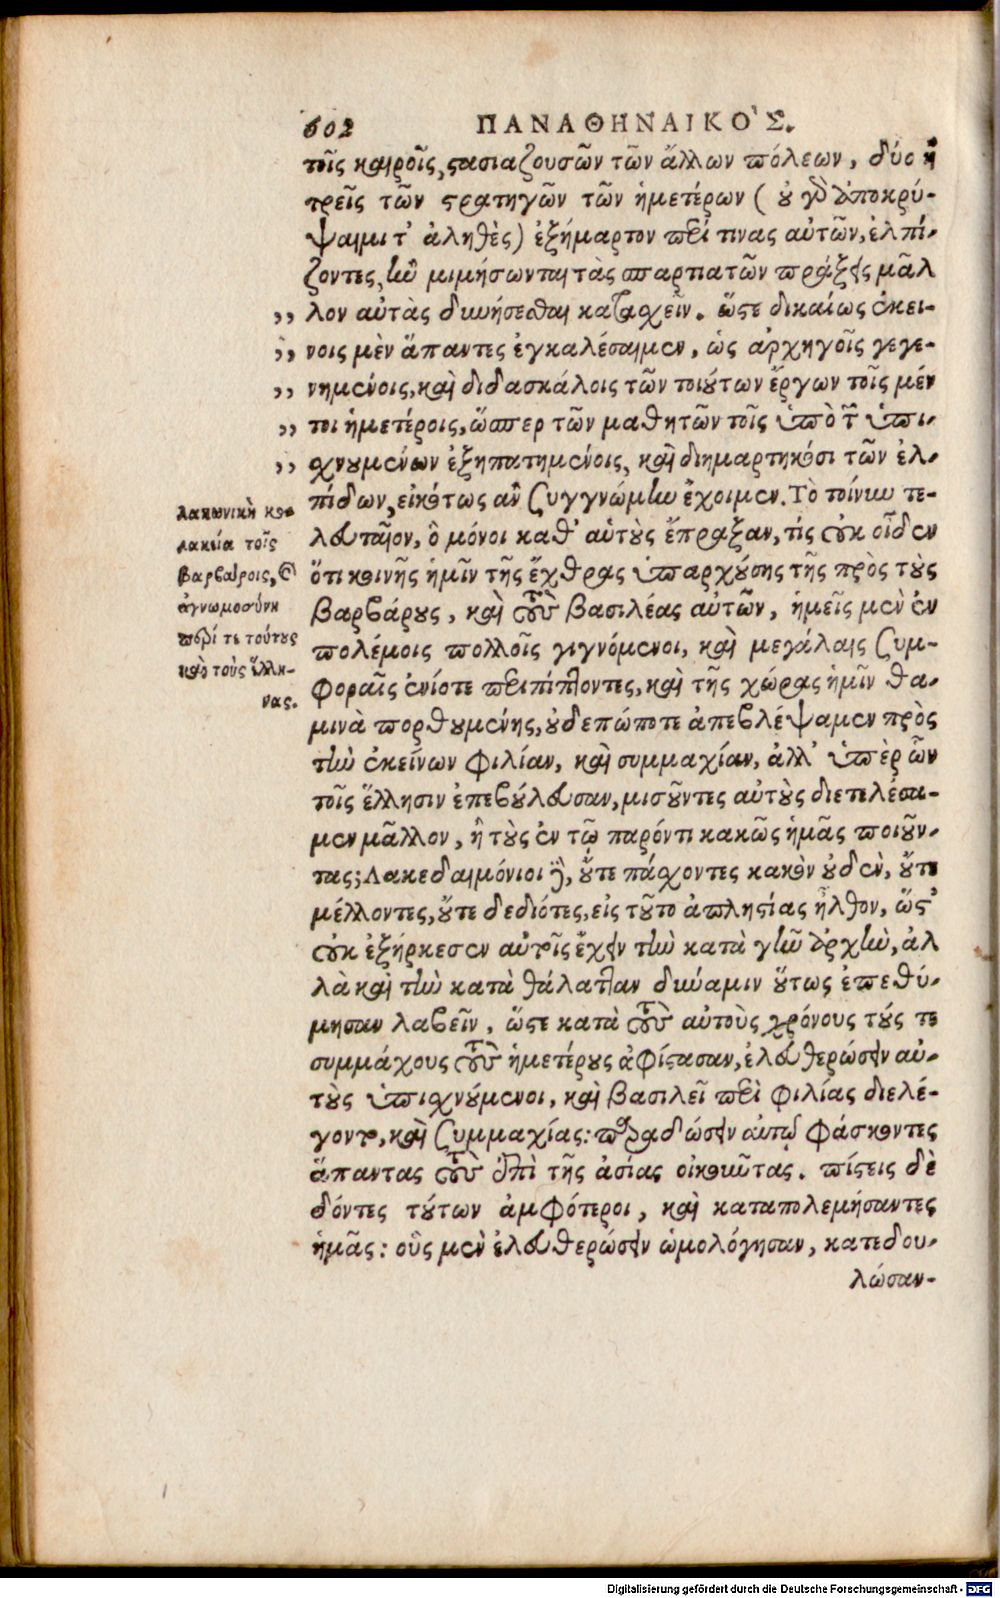 602 ΠΑΝΑΘΗΝΑΙΚΟ'Σ.
τοῖς καιροῖς, στασιαζουσῶν τῶν ἄλλων πόλεων, δύο ἢ
τρεῖς τῶν στρατηγῶν τῶν ἡμετέρων (οὐ γὰρ ἀποκρύ-
ψαιμι τ' ἀληθὲς) ἐξήμαρτον περί τινας αὐτῶν, ἐλπί-
ζοντες, ἢν μιμήσωνται τὰς σπαρτιατῶν πράξεις μᾶλ
,, λον αὐτὰς δυνήσεσθαι κατασχεῖν. ὥστε δικαίως ἐκεί-
,, νοις μὲν ἅπαντες ἐγκαλέσαιμεν, ὡς ἀρχηγοῖς γεγε-
,, νημένοις, καὶ διδασκάλοις τῶν τοιούτων ἔργων τοῖς μέν
,, τοι ἡμετέροις, ὥσπερ τῶν μαθητῶν τοῖς ὑπὸ τῶν ὑπι-
,, σχνουμένων ἐξηπατημένοις, καὶ διημαρτηκόσι τῶν ἐλ-
πίδων, εἰκότως ἂν συγγνώμην ἔχοιμεν. Τὸ τοίνυν τε-
λευταῖον, ὃ μόνοι καθ' αὑτοὺς ἔπραξαν, τίς οὐκ οἶδεν
ὅτι κοινῆς ἡμῖν τῆς ἔχθρας ὑπαρχούσης τῆς πρὸς τοὺς
βαρβάρους, καὶ τοὺς βασιλέας αὐτῶν, ἡμεῖς μὲν ἐν
πολέμοις πολλοῖς γιγνόμενοι, καὶ μεγάλαις συμ-
φοραῖς ἐνίοτε περιπίπτοντες, καὶ τῆς χώρας ἡμῖν θα-
μινὰ πορθουμένης, οὐδεπώποτε ἀπεβλέψαμεν πρὸς
τὴν ἐκείνων φιλίαν, καὶ συμμαχίαν, ἀλλ' ὑπὲρ ὧν
τοῖς ἕλλησιν ἐπεβούλευσαν, μισοῦντες αὐτοὺς διετελέσα-
μεν μᾶλλον, ἢ τοὺς ἐν τῷ παρόντι κακῶς ἡμᾶς ποιοῦν-
τας; Λακεδαιμόνιοι δὲ, οὔτε πάσχοντες κακὸν οὐδὲν, οὔτε
μέλλοντες, οὔτε δεδιότες, εἰς τοῦτο ἀπληστίας ἦλθον, ὥστ'
οὐκ ἐξήρκεσεν αὐτοῖς ἔχειν τὴν κατὰ γῆν ἀρχὴν, ἀλ
λὰ καὶ τὴν κατὰ θάλατταν δύναμιν οὕτως ἐπεθύ-
μησαν λαβεῖν, ὥστε κατὰ τοὺς αὐτοὺς χρόνους τούς τε
συμμάχους τοὺς ἡμετέρους ἀφίστασαν, ἐλευθερώσειν αὐ-
τοὺς ὑπισχνούμενοι, καὶ βασιλεῖ περὶ φιλίας διελέ-
γοντο, καὶ συμμαχίας: παραδώσειν αὐτῷ φάσκοντες
ἅπαντας τοὺς ἐπὶ τῆς ἀσίας οἰκοῦντας. πίστεις δὲ
δόντες τούτων ἀμφότεροι, καὶ καταπολεμήσαντες
ἡμᾶς: οὓς μὲν ἐλευθερώσειν ὡμολόγησαν, κατεδου-
λώσαν-
λακωνικὴ κο-
λακεία τοῖς
βαρβάροις, καὶ
ἀγνωμοσύνη
περί τε τούτους
καὶ τοὺς ἕλλη-
νας.
Digitalisierung gefördert durch die Deutsche Forschungsgemeinschaft - DFG